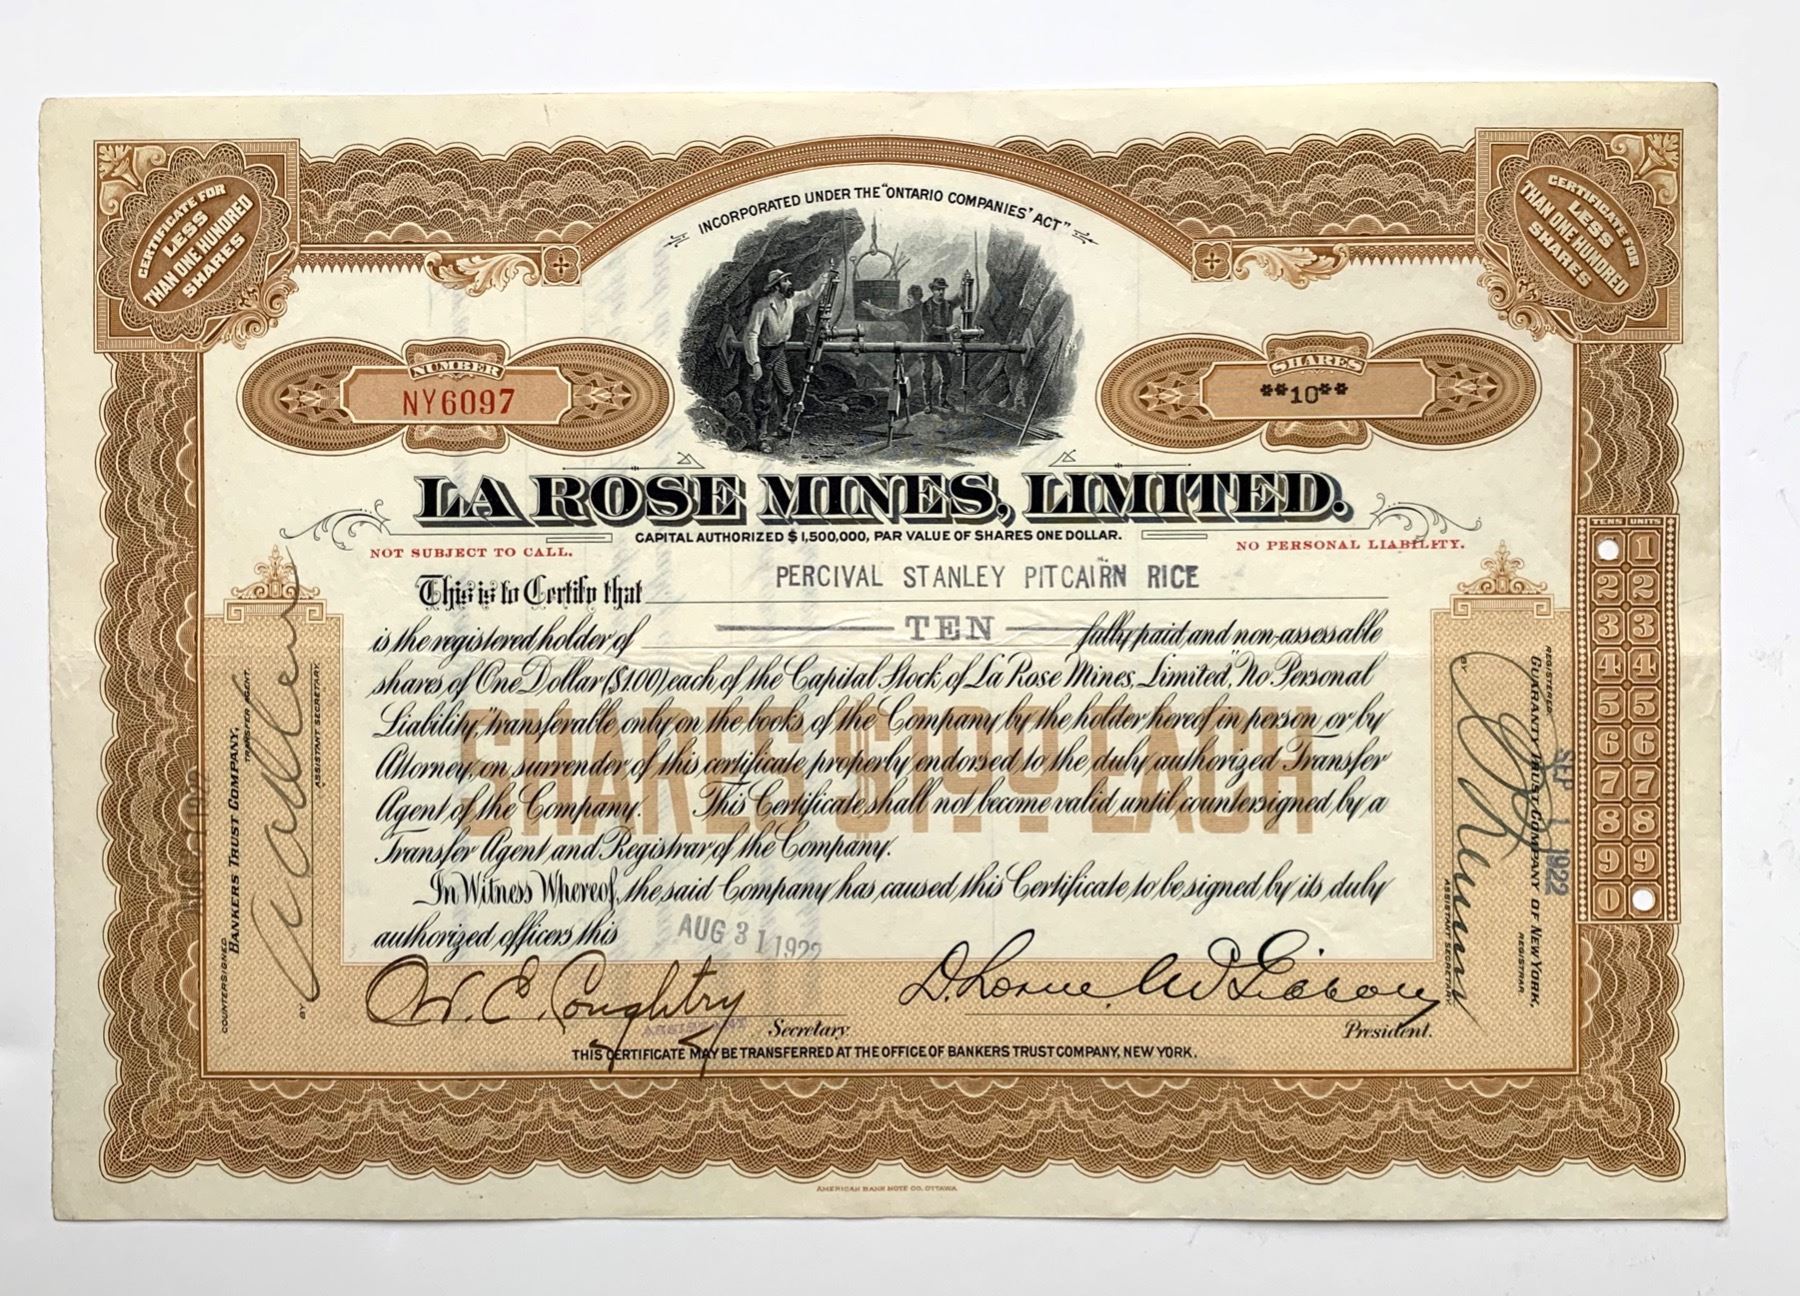 CERTIFICATE FOR
LESS
THAN ONE HUNDRED
SHARES
INCORPORATED UNDER THE "ONTARIO COMPANIES' ACT"
CERTIFICATE FOR
LESS
THAN ONE HUNDRED
SHARES
NUMBER
NY6097
SHARES
**10**
LA ROSE MINES, LIMITED.
CAPITAL AUTHORIZED $1,500,000, PAR VALUE OF SHARES ONE DOLLAR.
NOT SUBJECT TO CALL.
NO PERSONAL LIABILITY.
This is to Certify that PERCIVAL STANLEY PITCAIRN RICE
is the registered holder of TEN fully paid and non-assessable
shares of One Dollar ($1.00) each of the Capital Stock of La Rose Mines, Limited, "No Personal
Liability," transferable only on the books of the Company by the holder hereof in person or by
Attorney, on surrender of this certificate properly endorsed to the duly authorized Transfer
Agent of the Company. This Certificate shall not become valid until countersigned by a
Transfer Agent and Registrar of the Company.
In Witness Whereof, the said Company has caused this Certificate to be signed by its duly
authorized officers this AUG 31 1922
SHARES $1.00 EACH
W. E. Coughtry
ASSISTANT Secretary.
President.
THIS CERTIFICATE MAY BE TRANSFERRED AT THE OFFICE OF BANKERS TRUST COMPANY, NEW YORK.
COUNTERSIGNED
BANKERS TRUST COMPANY,
TRANSFER AGENT.
BY
ASSISTANT SECRETARY.
REGISTERED
GUARANTY TRUST COMPANY OF NEW YORK,
REGISTRAR
SEP 1 1922
BY
ASSISTANT SECRETARY.
TENS UNITS
1
2 2
3 3
4 4
5 5
6 6
7 7
8 8
9 9
0
AMERICAN BANK NOTE CO. OTTAWA